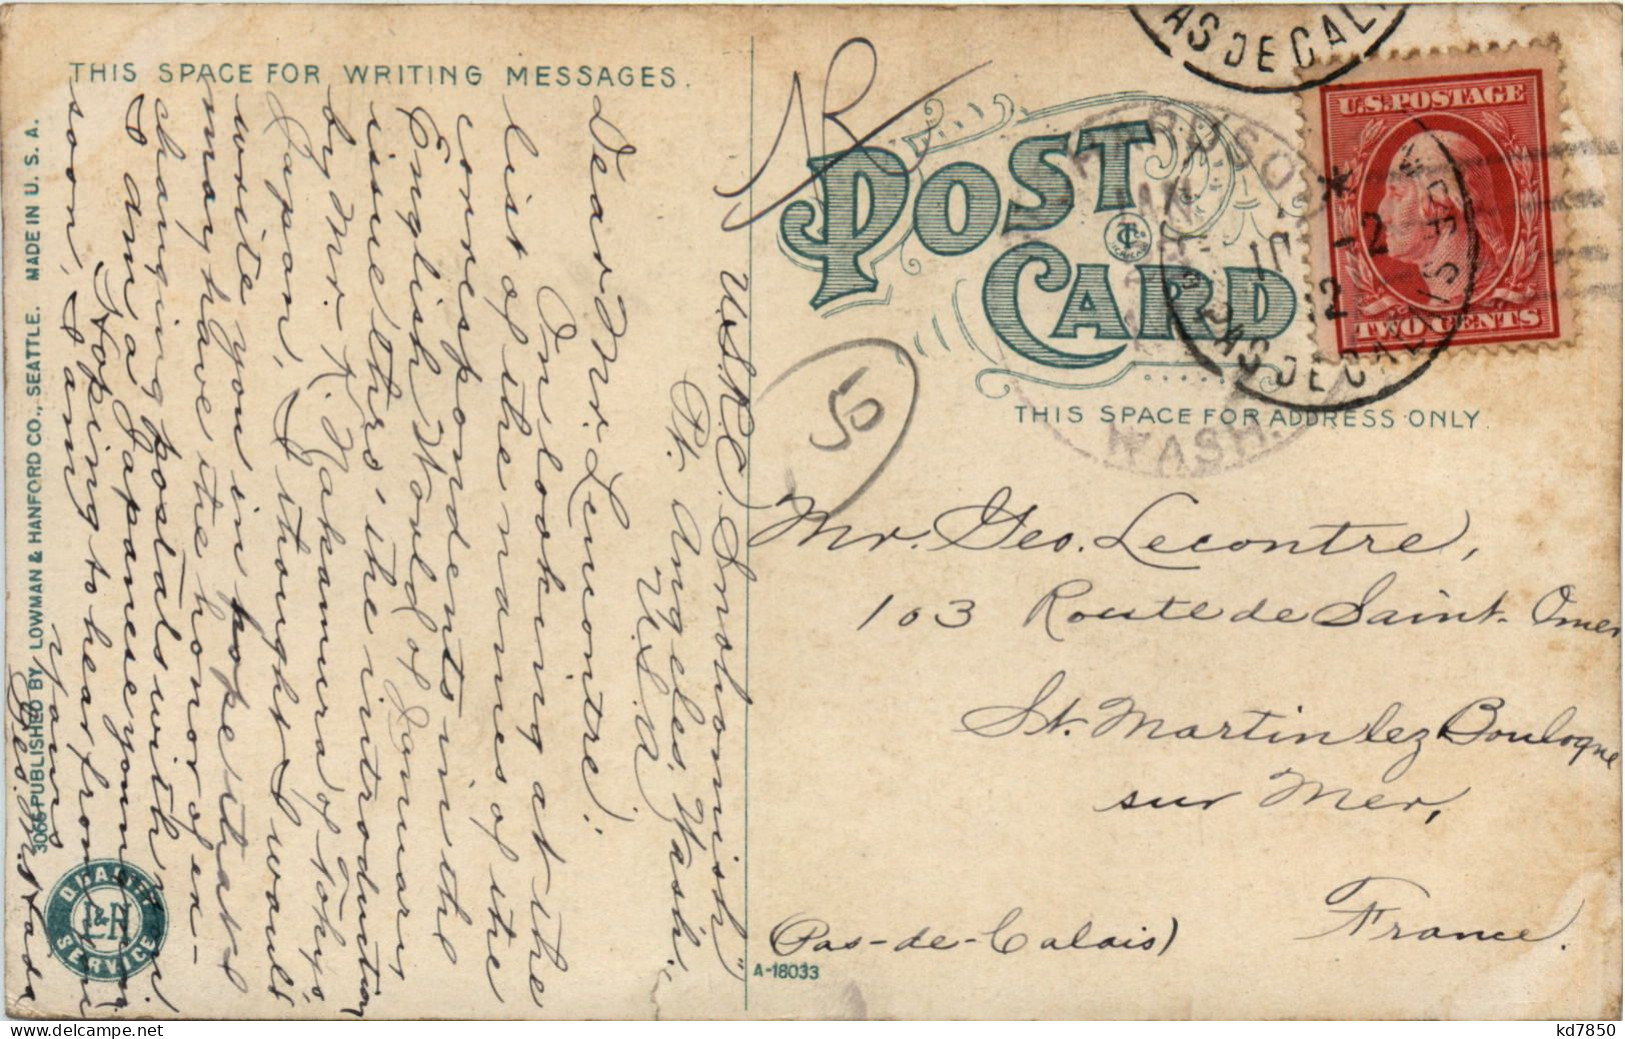 THIS SPACE FOR WRITING MESSAGES.
U.S.R.C. Snohomish"
Pt. Angeles, Wash.,
U.S.A.
Dear Mr. Lecontre:
On looking at the
list of the names of the
correspondents in the
English World of January
issue thrs' the introduction
by Mr. K. Nakamura of Tokyo,
Japan, I thought I would
write you in hope that I
may have the honor of ex-
changing postals with you
I am a Japanese young man
Hoping to hear from you
soon, I am,
Yours
Geo. M. Wada
3066 PUBLISHED BY LOWMAN & HANFORD CO., SEATTLE. MADE IN U. S. A.
QUALITY
L&H
SERVICE
POST
CARD
THIS SPACE FOR ADDRESS ONLY.
U.S. POSTAGE
TWO CENTS
PAS DE CALAIS
WASH.
55
Mr. Geo. Lecontre,
103 Route de Saint-Omer
St. Martin lez Boulogne
sur Mer,
France.
(Pas-de-Calais)
A-18033
kd7850